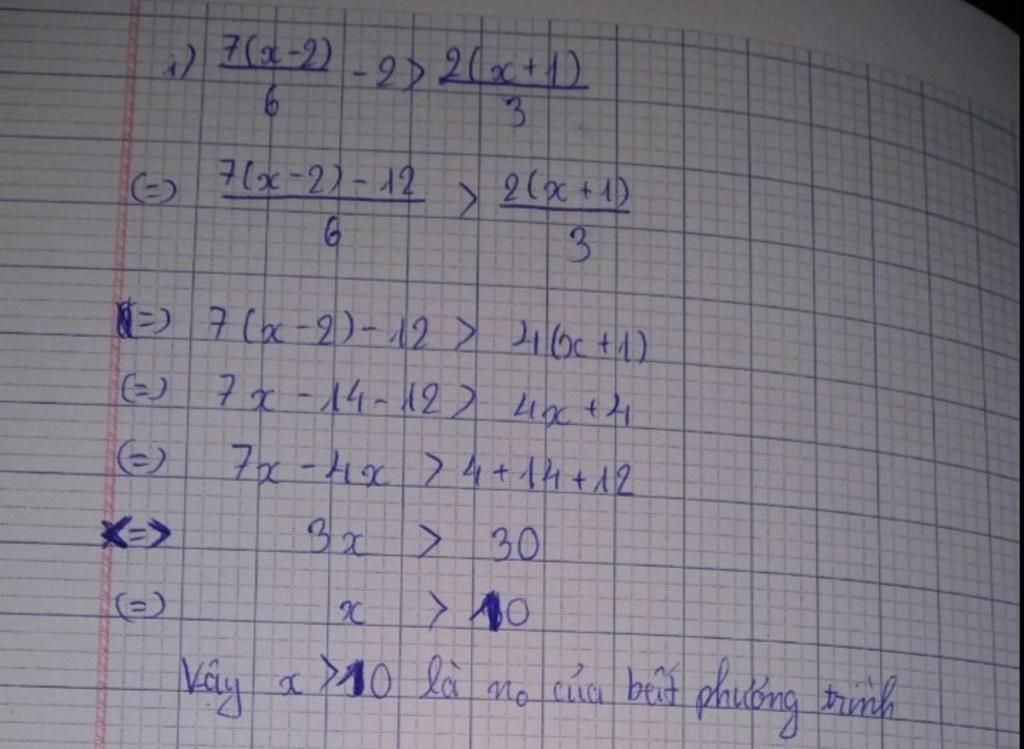 i) 7(x-2)/6 - 2 > 2(x+1)/3
(=) 7(x-2)-12/6 > 2(x+1)/3
(=) 7(x-2)-12 > 4(x+1)
(=) 7x-14-12 > 4x+4
(=) 7x-4x > 4+14+12
<=> 3x > 30
(=) x > 10
Vậy x > 10 là no của bất phương trình